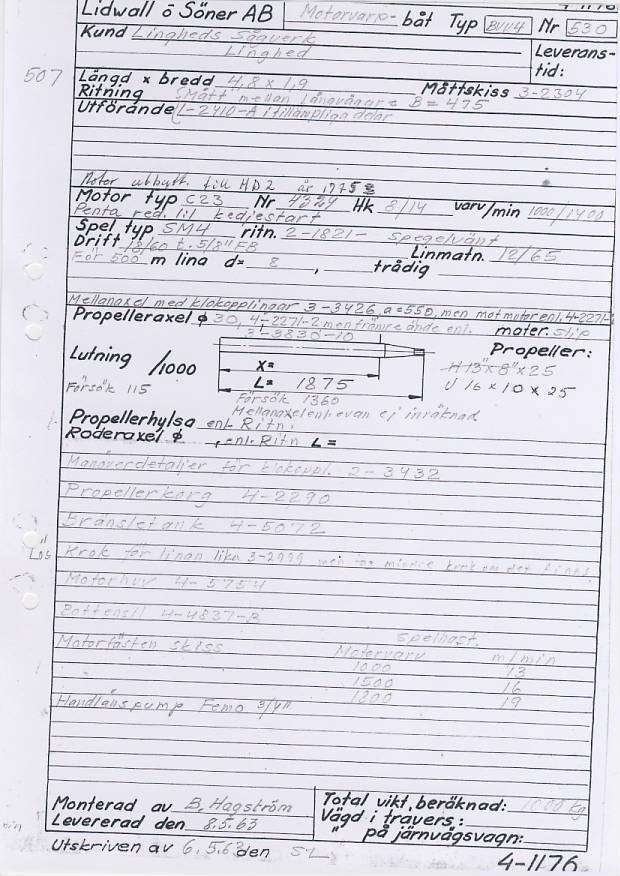 4-1176
Lidwall & Söner AB Motorvarp- båt Typ BVV4 Nr 530
Kund Lingheds Sågverk
Linghed
Leverans-
tid:
507
Längd x bredd 4,8 x 1,9 Måttskiss 3-2304
Ritning "Mått" mellan långvägar = B = 475
Utförande L-2410-A i tillämpliga delar
Motor utbytt. till HD2 år 1975
Motor typ C23 Nr 4324 Hk 8/14 varv/min 1000/1400
Penta red. till kedjestart
Spel typ SM4 ritn. 2-1821- spegelvänt
Drift 18/60 t. 5/8" FB Linmatn. 12/65
För 500 m lina d= 8 , trådig
Mellanaxel med klokopplingar 3-3426, a=550, men mot motor enl. 4-2271-
Propelleraxel φ 30, 4-2271-2 men främre ände enl. mater. slip
3-3830-10
Propeller:
Lutning /1000
X=
H 13" x 8" x 25
L= 1875
U 16 x 10 x 25
Försök 115
Försök 1360
Mellanaxel enl. ovan ej inräknad
Propellerhylsa enl. Ritn:
Roderaxel φ , enl. Ritn L =
Manöverdetaljer för klokoppl. 2-3432
Propellerkorg 4-2290
Bränsletank 4-5072
Lös Krok för linan lika 3-2999 men för mindre krok om det finns
Motorhuv 4-5754
Bottensil 4-4837-B
Spelhast.
Motorfästen skiss Motorvarv m/min
1000 13
1500 16
1800 19
Handlänspump Femo 3/4"
Monterad av B. Hagström
Levererad den 8.5.63
Total vikt, beräknad: 1000 kg
Vägd i travers:
" på järnvägsvagn:
Utskriven av 6.5.63 den SL
4-1176